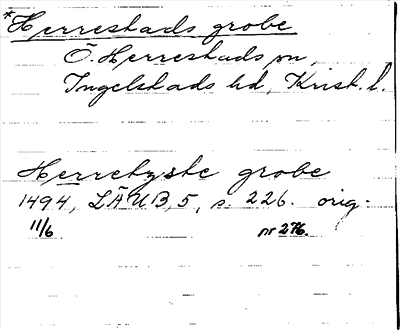 *Herrestads grobe
Ö. Herrestads sn,
Ingelstads hd, Krist. l.
Herrehyste grobe
1494, LÄUB, 5, s. 226. orig.
11/6 nr 276.